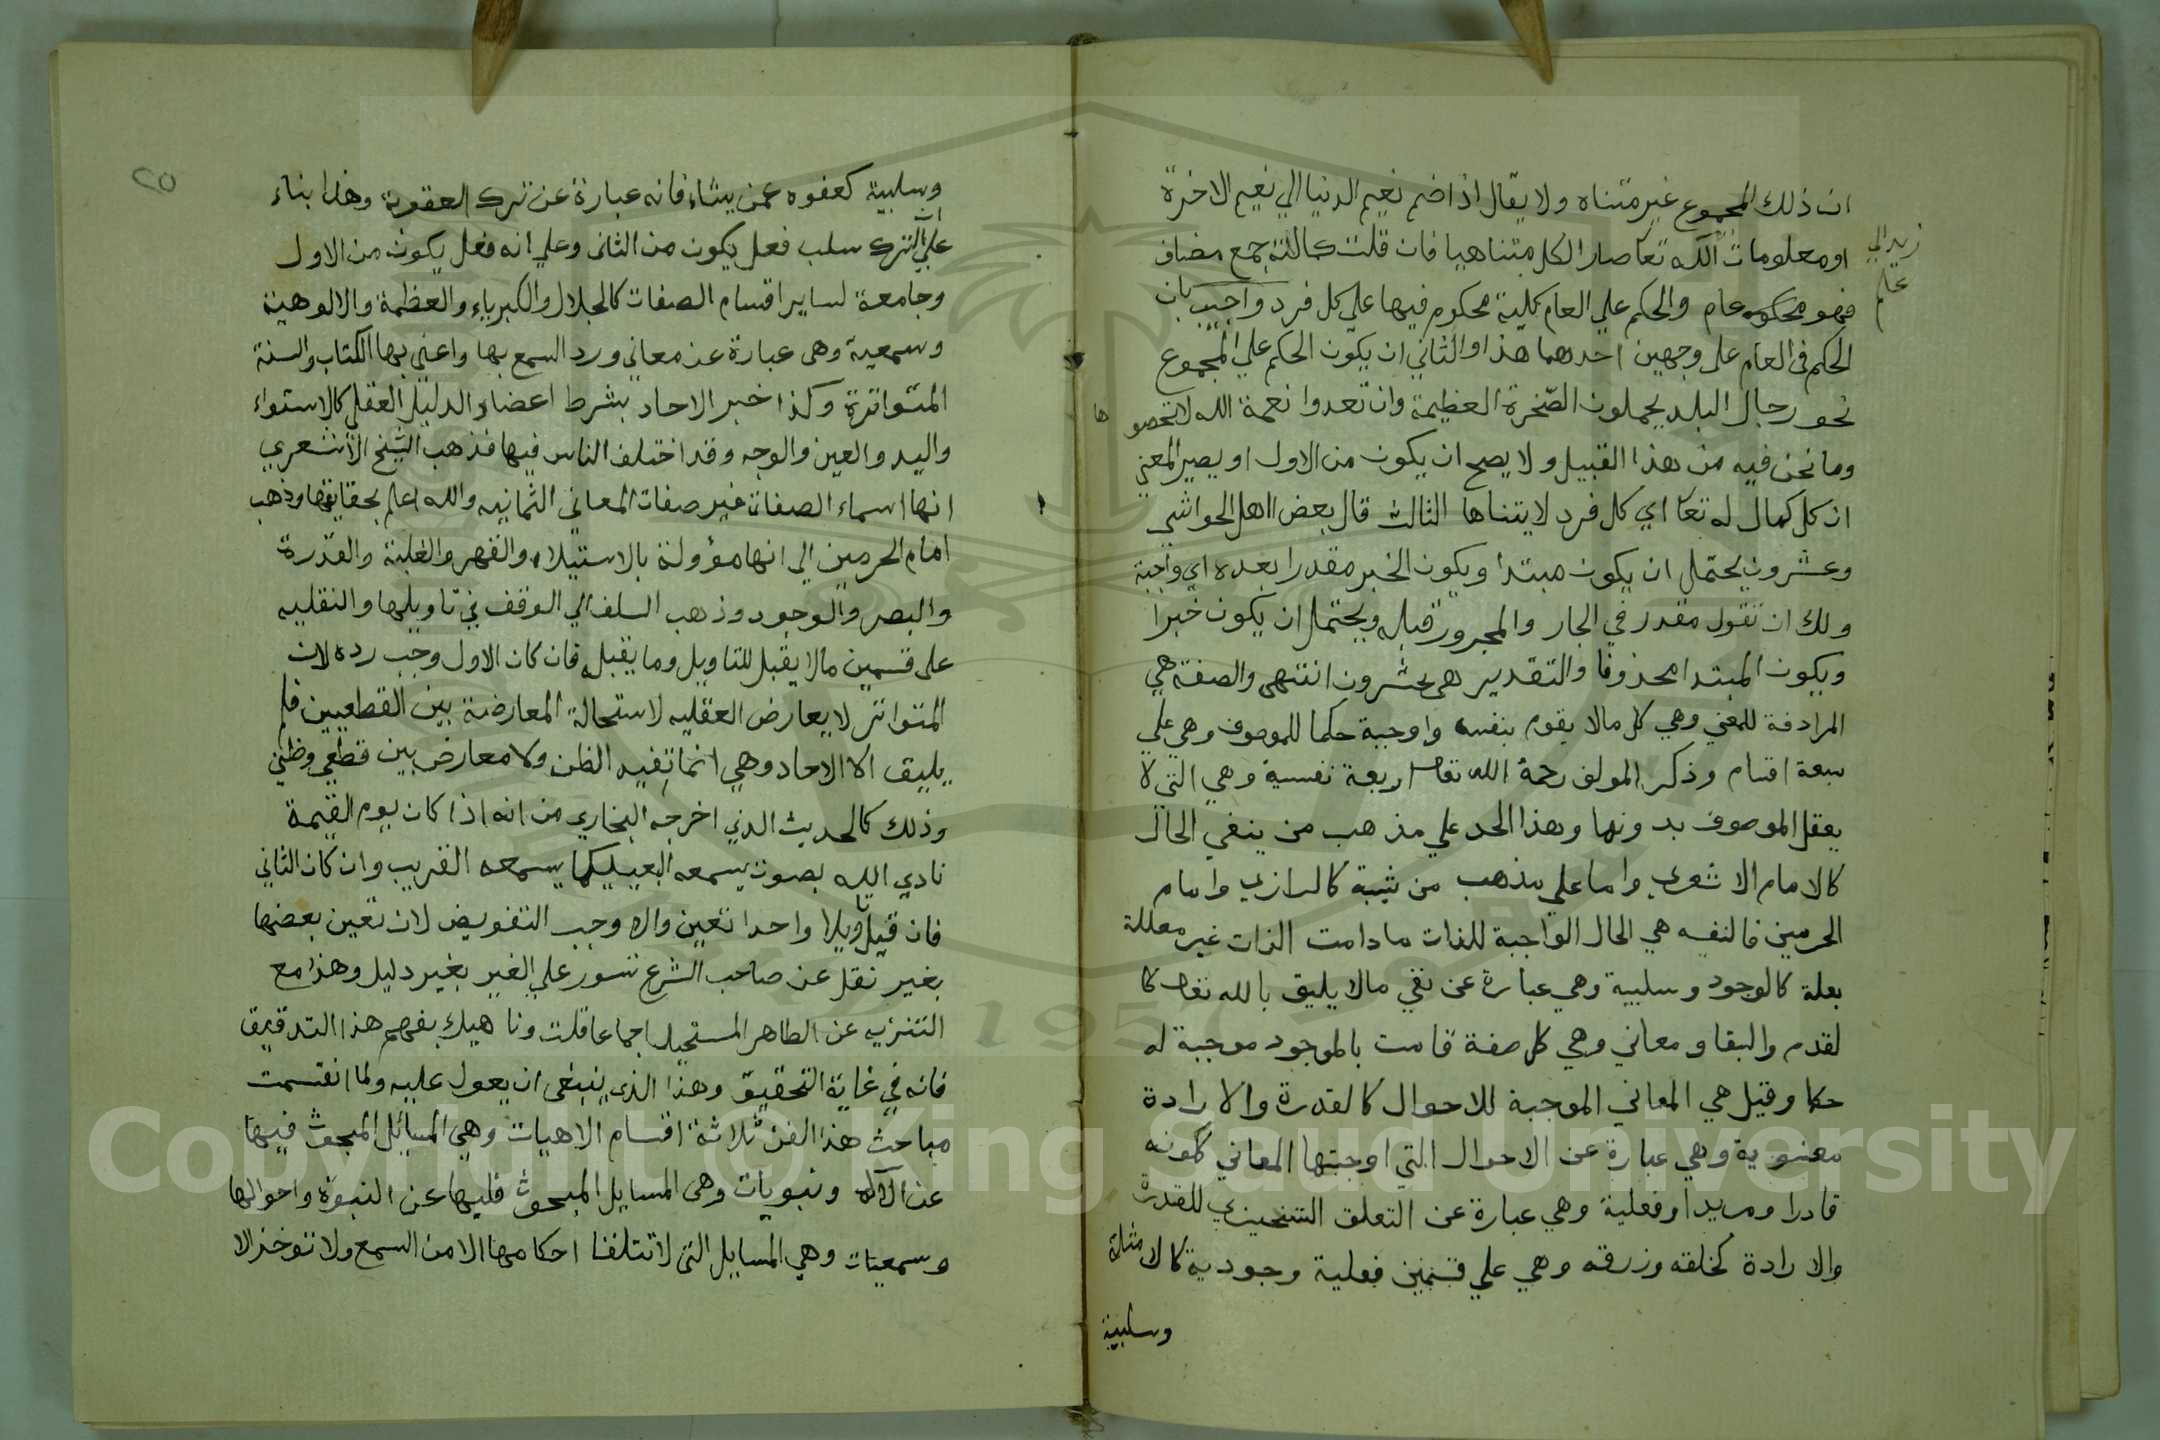 ان ذلك المجموع غير متناه ولا يقال اذا ضم نعيم الدنيا الي نعيم الاخرة
او معلومات الله تعا صار الكل متناهيا فان قلت كمالاته جمع مضاف
فهو محكوم عام والحكم علي العام كلية محكوم فيها علي كل فرد واجيب بان
الحكم في العام على وجهين احدهما هذا والثاني ان يكون الحكم علي المجموع
نحو رجال البلد يحملون الصخرة العظيمة وان تعدوا نعمة الله لا تحصو
ها
وما نحن فيه من هذا القبيل ولا يصح ان يكون من الاول او يصير المعني
ان كل كمال له تعا اي كل فرد لا يتناها الثالث قال بعض اهل الحواشي
وعشرون يحتمل ان يكون مبتدا ويكون الخبر مقدرا بعده اي واجبة
ولك ان تقول مقدر في الجار والمجرور قبله ويحتمل ان يكون خبرا
ويكون المبتدا محذوفا والتقدير هي عشرون انتهى والصفة هي
المرادفة للمعني وهي كل مالا يقوم بنفسه واوجبة حكما للموصوف وهي علي
سبعة اقسام وذكر المولف رحمة الله تعالى اربعة نفسية وهي التي لا
يعقل الموصوف بدونها وهذا الحد علي مذهب من ينفي الحال
كالامام الاشعري واما علي مذهب من يثبته كالرازي وامام
الحرمين فالنفسيه هي الحال الواجبة للذات مادامت الذات غير معللة
بعلة كالوجود وسلبية وهي عبارة عن نفي مالا يليق بالله تعالى كا
لقدم والبقا ومعاني وهي كل صفة قامت بالموجود موجبة له
حكما وقيل هي المعاني الموجبة للاحوال كالقدرة والارادة
معنوية وهي عبارة عن الاحوال التي اوجبتها المعاني ككونه
قادرا ومريدا وفعلية وهي عبارة عن التعلق التنجيزي للقدرة
والارادة كخلقه ورزقه وهي علي قسمين فعلية وجودية كالامثلة
وسلبية
زيد الي
علم
٢٥
وسلبية كعفوه عمن يشاء فانه عبارة عن ترك العقوبة وهذا بناء
علي ان الترك سلب فعل يكون من الثاني وعلي انه فعل يكون من الاول
وجامعة لساير اقسام الصفات كالجلال والكبرياء والعظمة والالوهية
وسمعية وهي عبارة عن معاني ورد السمع بها واعني بها الكتاب والسنة
المتواترة وكذا خبر الاحاد بشرط اعضاد الدليل العقلي كالاستواء
واليد والعين والوجه وقد اختلف الناس فيها فذهب الشيخ الاشعري
انها اسماء الصفات غير صفات المعاني الثمانيه والله اعلم بحقايقها وذهب
امام الحرمين الى انها مؤولة بالاستيلاء والقهر والغلبة والقدرة
والبصر والوجود وذهب السلف الي الوقف في تاويلها والنقليه
على قسمين مالا يقبل للتاويل وما يقبل فان كان الاول وجب رده لان
المتواتر لا يعارض العقليه لاستحالة المعارضة بين القطعيين فلم
يليق الا الاحاد وهي انما تفيد الظن ولا معارض بين قطعي وظني
وذلك كالحديث الذي اخرجه البخاري من انه اذا كان يوم القيمة
نادي الله بصوت يسمعه البعيد كما يسمعه القريب وان كان الثاني
فان قبل تاويلا واحدا تعين والا وجب التفويض لان تعين بعضها
بغير نقل عن صاحب الشرع تسور علي الغير بغير دليل وهذا مع
التنزيه عن الظاهر المستحيل اجماعا قلت ونا هيك بفهم هذا التدقيق
فانه في غاية التحقيق وهذا الذي ينبغي ان يعول عليه ولما انقسمت
مباحث هذا الفن ثلاثة اقسام الاهيات وهي المسائل المبحوث فيها
عن الآله ونبويات وهي المسايل المبحوث فليها عن النبوة واحوالها
وسمعيات وهي المسايل التي لا تتلقا احكامها الا من السمع ولا توخذ الا
Copyright © King Saud University
1957